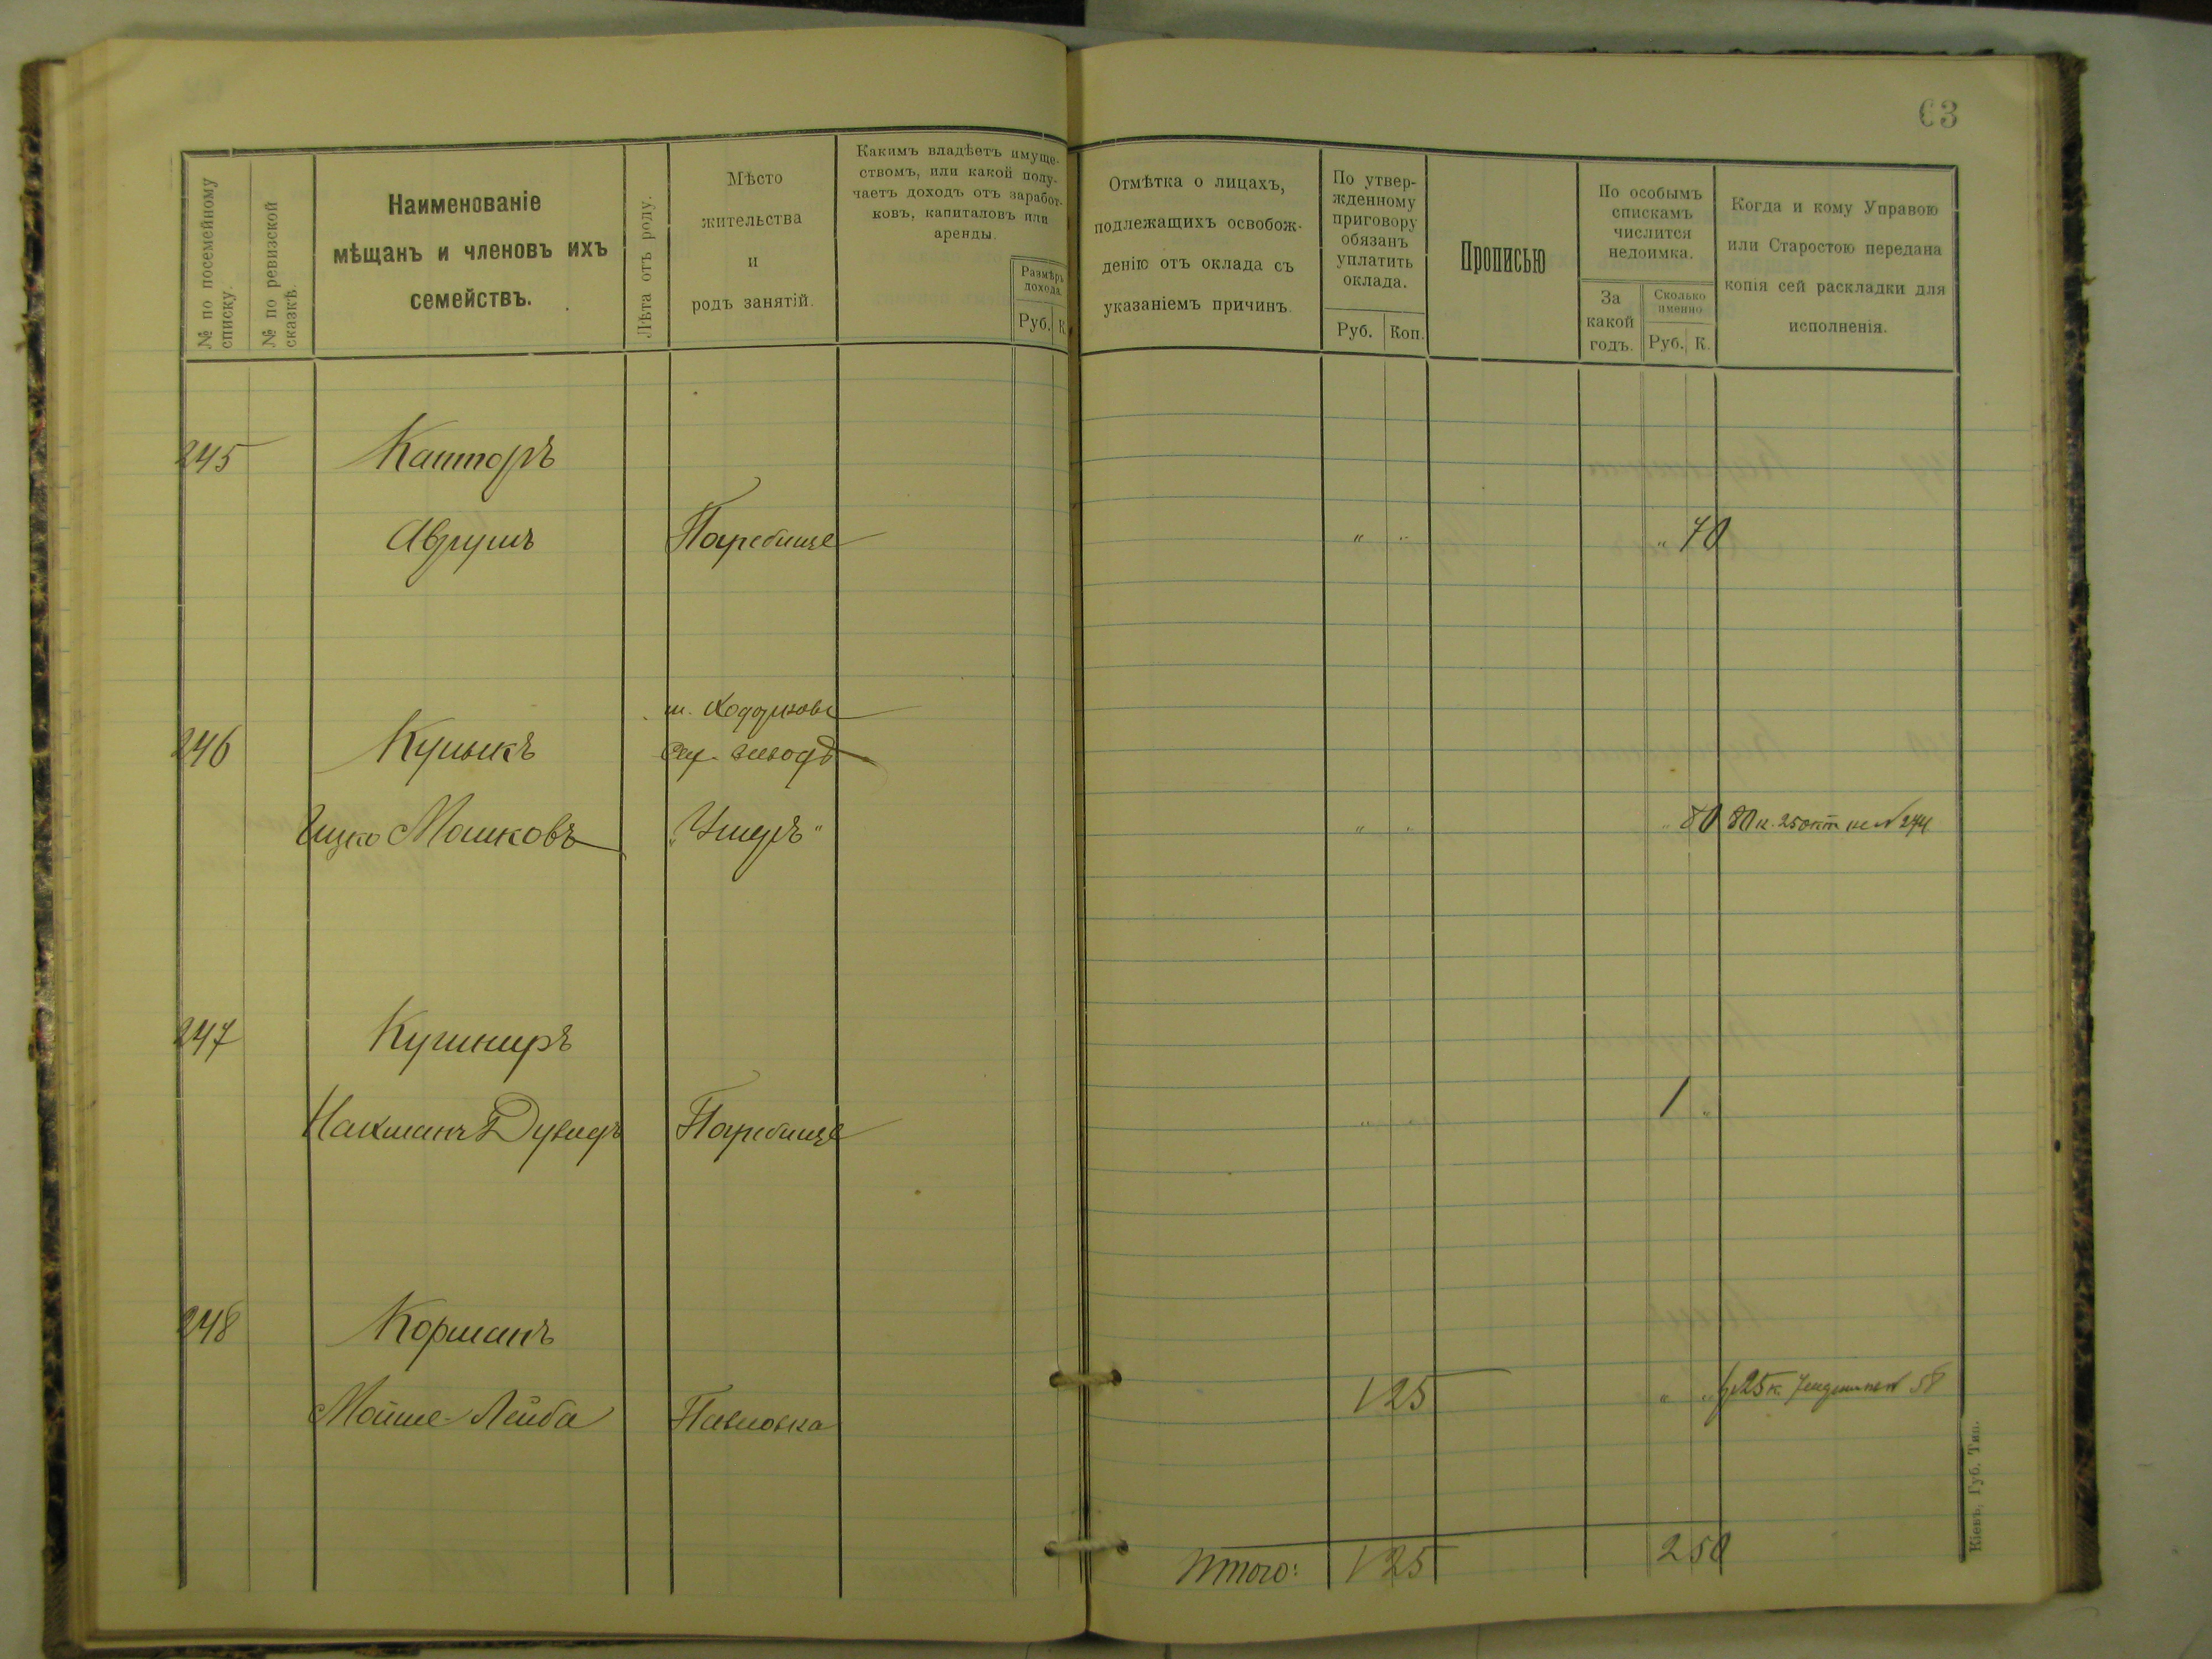 63
№ по посемейному списку.
№ по ревизской сказкѣ.
Наименованіе
мѣщанъ и членовъ ихъ
семействъ.
Лѣта отъ роду.
Мѣсто
жительства
и
родъ занятій.
Какимъ владѣетъ имуще-
ствомъ, или какой полу-
чаетъ доходъ отъ заработ-
ковъ, капиталовъ или
аренды.
Размѣръ
дохода.
Руб. К.
Отмѣтка о лицахъ,
подлежащихъ освобож-
денію отъ оклада съ
указаніемъ причинъ.
По утвер-
жденному
приговору
обязанъ
уплатить
оклада.
Руб. Коп.
Прописью
По особымъ
спискамъ
числится
недоимка.
За
какой
годъ.
Сколько
именно
Руб. К.
Когда и кому Управою
или Старостою передана
копія сей раскладки для
исполненія.
245 Канторъ
Аврумъ Погребище " " " 70
м. Ходорковъ
246 Куцыкъ Сах. заводъ
Ицко Мошковъ " " " 80 80 к. 25 окт. 274
247 Кушниръ
Нахманъ Дувидъ Погребище " 1 "
248 Корманъ
Мойше-Лейба Павловка 1 25 " " 1р 25 к. 58
Итого: 1 25 2 50
Кіевъ, Губ. Тип.